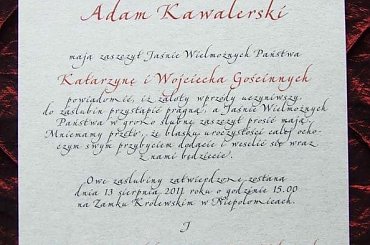 Adam Kawalerski
mają zaszczyt Jaśnie Wielmożnych Państwa
Katarzynę i Wojciecha Gościnnych
powiadomić, iż zaloty wprzódy uczyniwszy,
do zaślubin przystąpić pragną, a Jaśnie Wielmożnych
Państwa w grono ślubne zaszczyt prosić mają
Mniemamy przeto, że blasku uroczystości całej ocho-
czym swym przybyciem dodacie i weselić się wraz
z nami będziecie.
Owe zaślubiny zatwierdzone zostaną
dnia 13 sierpnia 2011 roku o godzinie 15.00
na Zamku Królewskim w Niepołomicach.